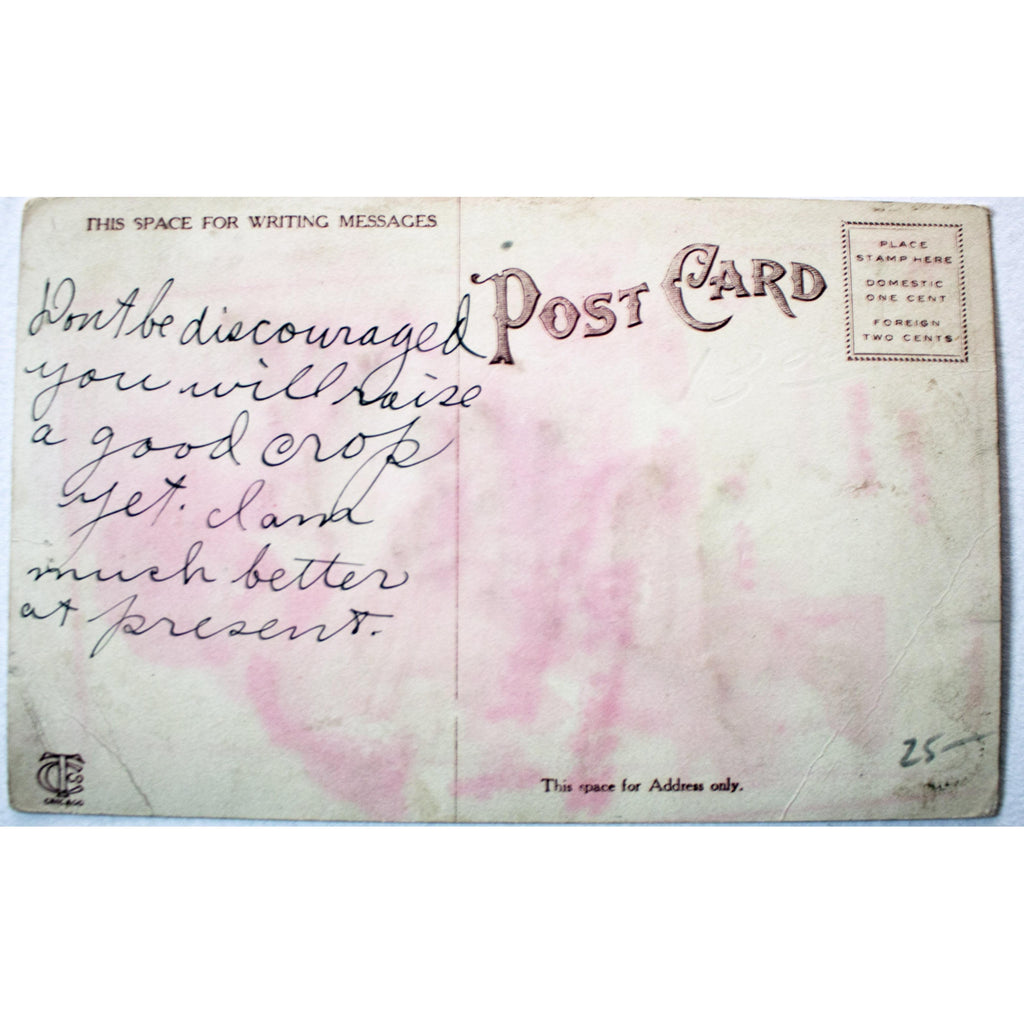 THIS SPACE FOR WRITING MESSAGES
POST CARD
PLACE
STAMP HERE
DOMESTIC
ONE CENT
FOREIGN
TWO CENTS
Dont be discouraged
you will raise
a good crop
yet. I am
much better
at present.
This space for Address only.
25—
CHICAGO